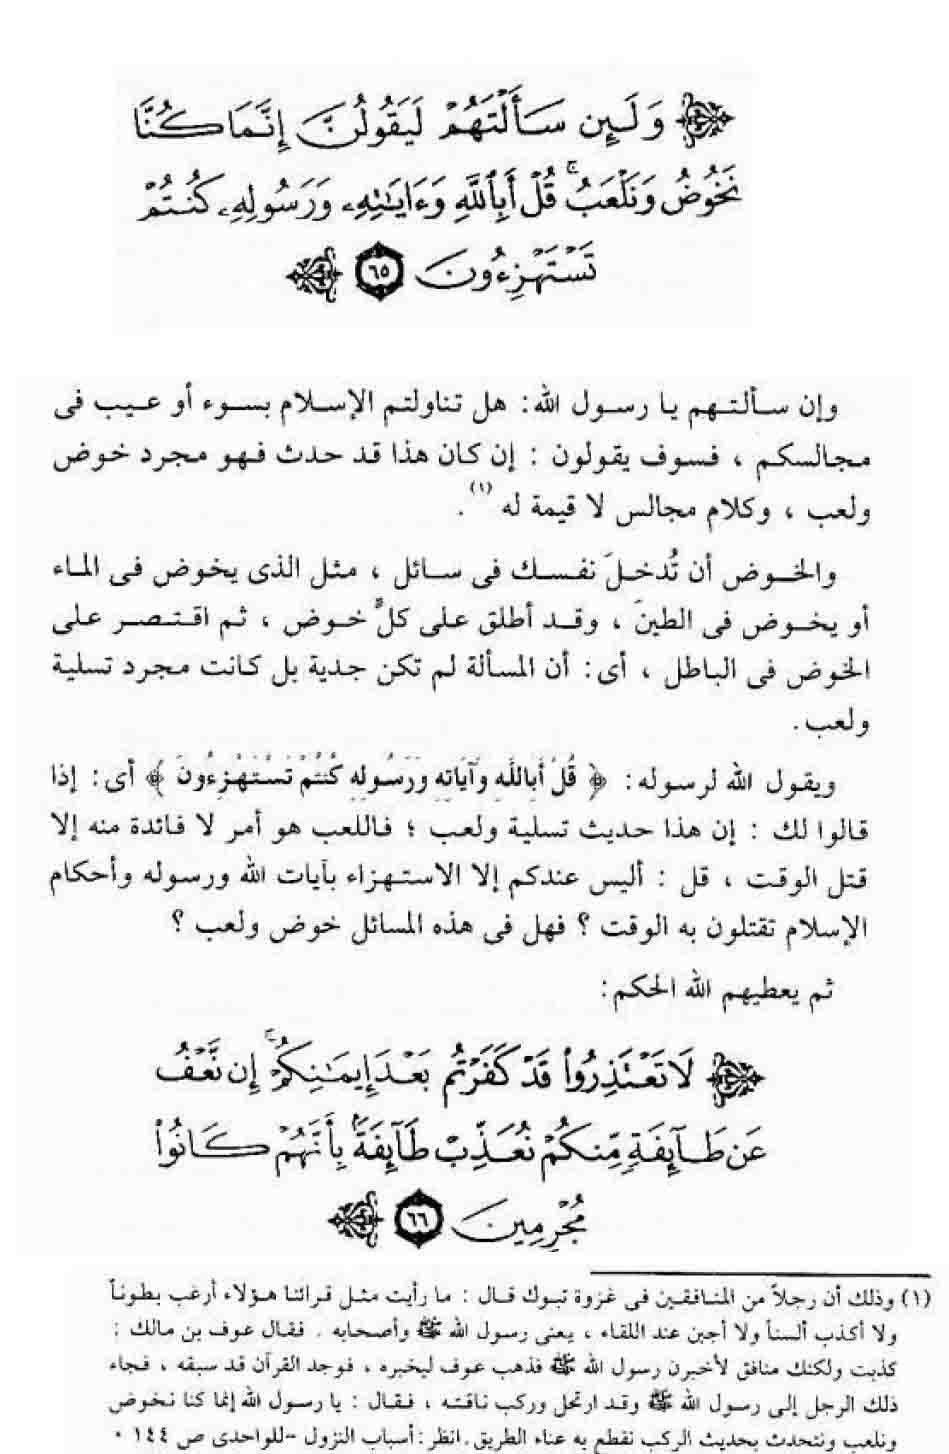 وَلَئِن سَأَلْتَهُمْ لَيَقُولُنَّ إِنَّمَا كُنَّا
نَخُوضُ وَنَلْعَبُ ۚ قُلْ أَبِٱللَّهِ وَءَايَٰتِهِۦ وَرَسُولِهِۦ كُنتُمْ
تَسْتَهْزِءُونَ ٦٥
وإن سألتهم يا رسول الله: هل تناولتم الإسلام بسوء أو عيب فى
مجالسكم ، فسوف يقولون : إن كان هذا قد حدث فهو مجرد خوض
ولعب ، وكلام مجالس لا قيمة له (١) .
والخوض أن تُدخلَ نفسك فى سائل ، مثل الذى يخوض فى الماء
أو يخوض فى الطين ، وقد أطلق على كلِّ خوض ، ثم اقتصر على
الخوض فى الباطل ، أى: أن المسألة لم تكن جدية بل كانت مجرد تسلية
ولعب.
ويقول الله لرسوله: ﴿ قُلْ أَبِاللَّهِ وَآيَاتِهِ وَرَسُولِهِ كُنتُمْ تَسْتَهْزِءُونَ ﴾ أى: إذا
قالوا لك : إن هذا حديث تسلية ولعب ؛ فاللعب هو أمر لا فائدة منه إلا
قتل الوقت ، قل : أليس عندكم إلا الاستهزاء بآيات الله ورسوله وأحكام
الإسلام تقتلون به الوقت ؟ فهل فى هذه المسائل خوض ولعب ؟
ثم يعطيهم الله الحكم:
لَا تَعْتَذِرُوا۟ قَدْ كَفَرْتُم بَعْدَ إِيمَٰنِكُمْ ۚ إِن نَّعْفُ
عَن طَآئِفَةٍ مِّنكُمْ نُعَذِّبْ طَآئِفَةًۢ بِأَنَّهُمْ كَانُوا۟
مُجْرِمِينَ ٦٦
(١) وذلك أن رجلاً من المنافقين فى غزوة تبوك قال : ما رأيت مثل قرائنا هؤلاء أرغب بطوناً
ولا أكذب ألسناً ولا أجبن عند اللقاء ، يعنى رسول الله ﷺ وأصحابه . فقال عوف بن مالك :
كذبت ولكنك منافق لأخبرن رسول الله ﷺ فذهب عوف ليخبره ، فوجد القرآن قد سبقه ، فجاء
ذلك الرجل إلى رسول الله ﷺ وقد ارتحل وركب ناقته ، فقال : يا رسول الله إنما كنا نخوض
ونلعب ونتحدث بحديث الركب نقطع به عناء الطريق . انظر : أسباب النزول - للواحدى ص ١٤٤ .